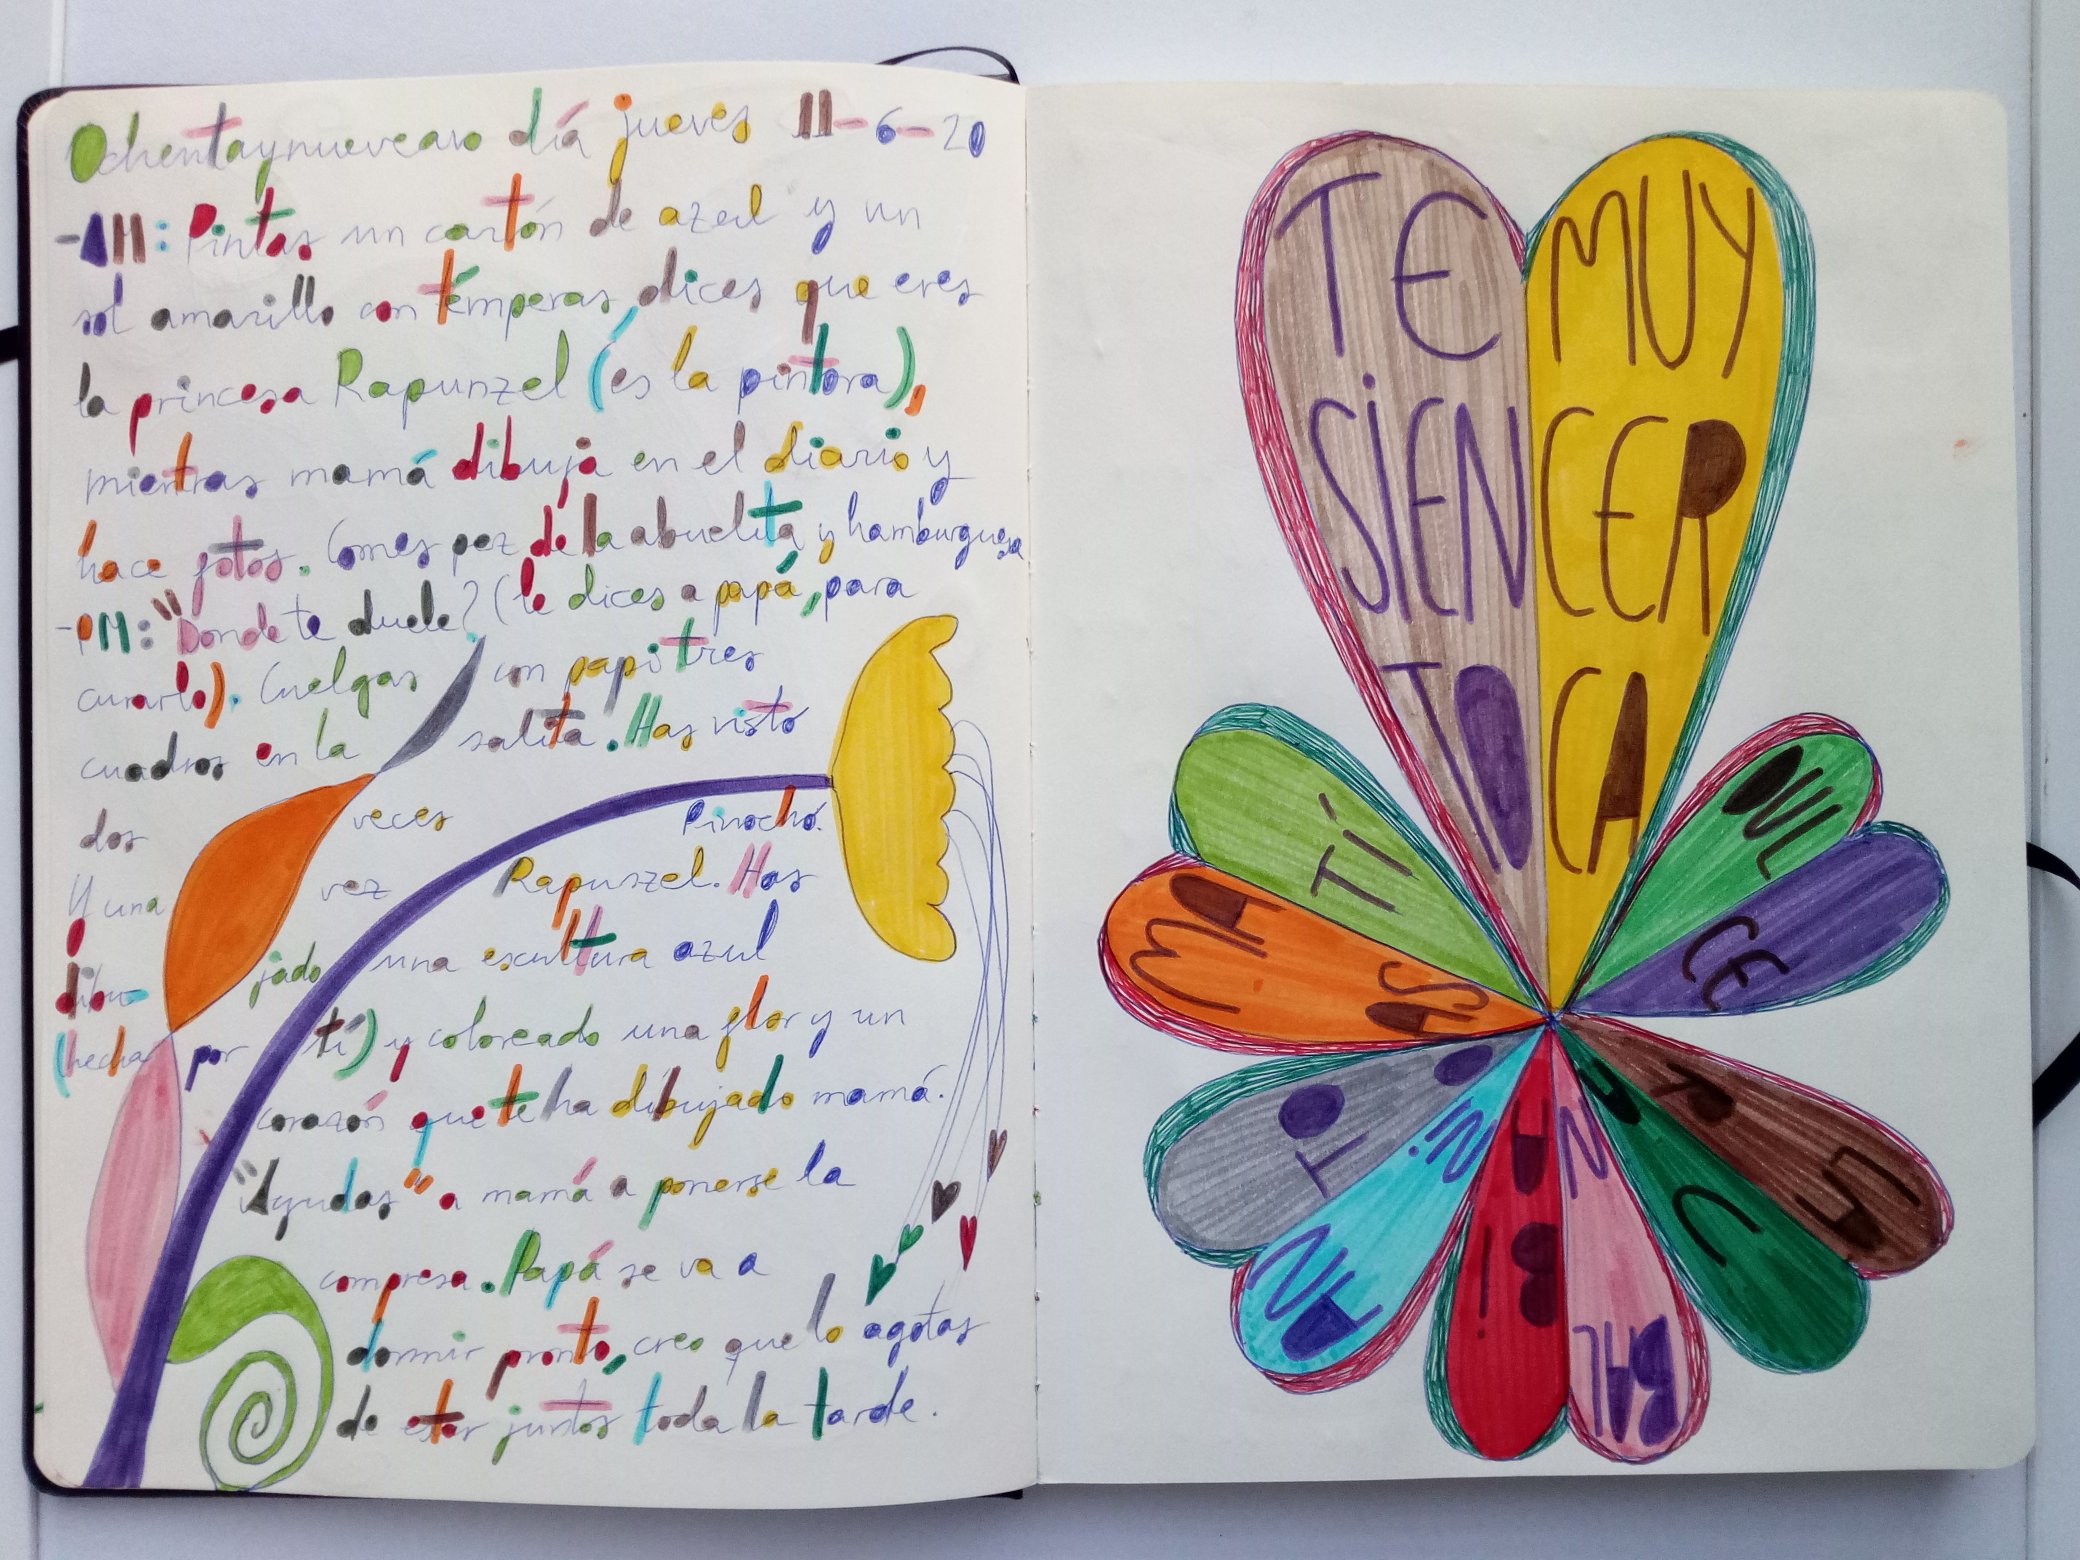 Ochentaynueveavo día jueves 11-6-20
-AM: Pintas un cartón de azul y un
sol amarillo con témperas, dices que eres
la princesa Rapunzel (es la pintora),
mientras mamá dibuja en el diario y
hace fotos. Comes pez de la abuelita y hamburguesa
-PM: "Donde te duele? (le dices a papá, para
curarlo). Cuelgas con papi tres
cuadros en la salita. Has visto
dos veces Pinocho.
Y una vez Rapunzel. Has
dibujado una escultura azul
(hecha por tí) y coloreado una flor y un
corazón que te ha dibujado mamá.
"Ayudas" a mamá a ponerse la
compresa. Papá se va a
dormir pronto, creo que lo agotas
de estar juntos toda la tarde.
TE MUY
SIEN CER
TO CA
TÍ
MA AS
TO
AN NI
BI
BAL N
C
DUL
CE